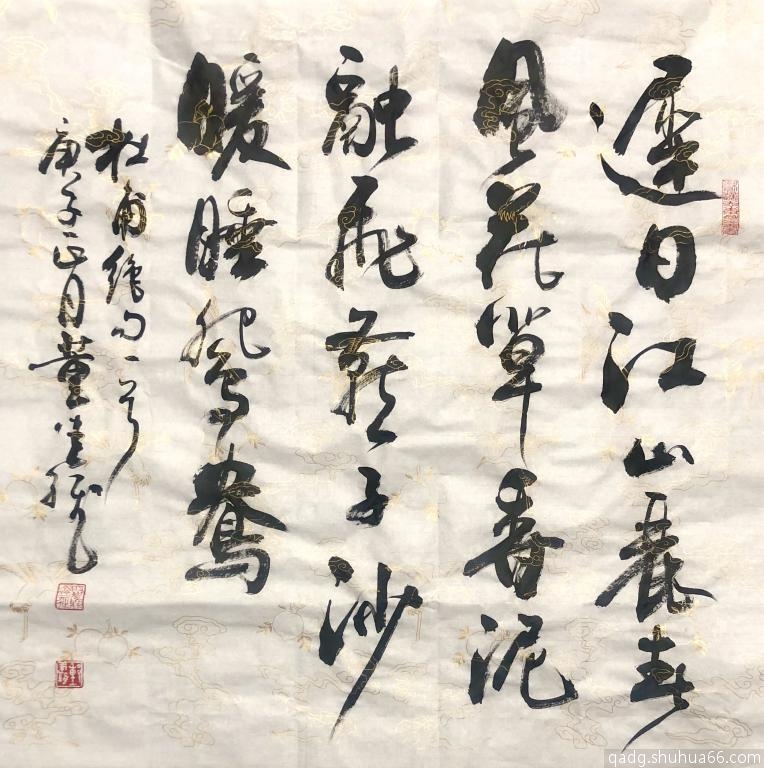 遲日江山麗春
風花草香泥
融飛燕子沙
暖睡鴛鴦
杜甫絕句一首
庚子正月董
qadg.shuhua66.com